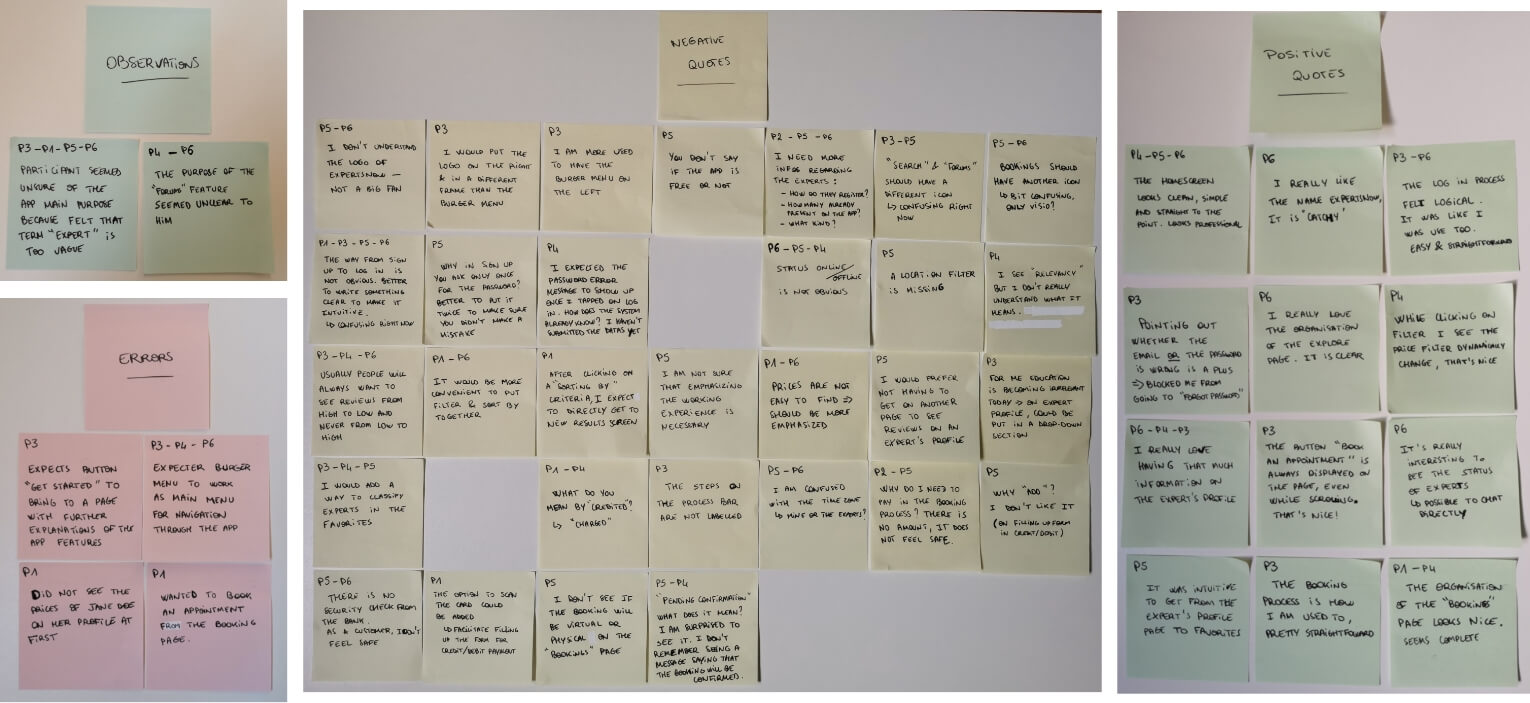 OBSERVATIONS
P3-P1-P5-P6
PARTICIPANT SEEMED
UNSURE OF THE
APP MAIN PURPOSE
BECAUSE FELT THAT
TERM "EXPERT" IS
TOO VAGUE
P4 - P6
THE PURPOSE OF THE
"FORUMS" FEATURE
SEEMED UNCLEAR TO
HIM
ERRORS
P3
EXPECTS BUTTON
"GET STARTED" TO
BRING TO A PAGE
WITH FURTHER
EXPLANATIONS OF THE
APP FEATURES
P3 - P4 - P6
EXPECTER BURGER
MENU TO WORK
AS MAIN MENU
FOR NAVIGATION
THROUGH THE APP
P1
DID NOT SEE THE
PRICES OF JANE DOE
ON HER PROFILE AT
FIRST
P1
WANTED TO BOOK
AN APPOINTMENT
FROM THE BOOKING
PAGE.
NEGATIVE
QUOTES
P5-P6
I DON'T UNDERSTAND
THE LOGO OF
EXPERTSNOW —
NOT A BIG FAN
P3
I WOULD PUT THE
LOGO ON THE RIGHT
& IN A DIFFERENT
FRAME THAN THE
BURGER MENU
P3
I AM MORE USED
TO HAVE THE
BURGER MENU ON
THE LEFT
P5
YOU DON'T SAY
IF THE APP IS
FREE OR NOT
P2 - P5 - P6
I NEED MORE
INFOS REGARDING
THE EXPERTS:
- HOW DO THEY REGISTER?
- HOW MANY ALREADY
PRESENT ON THE APP?
- WHAT KIND?
P3-P5
"SEARCH" & "FORUMS"
SHOULD HAVE A
DIFFERENT ICON
↳ CONFUSING RIGHT
NOW
P5 - P6
BOOKINGS SHOULD
HAVE ANOTHER ICON
↳ BIT CONFUSING,
ONLY VISIO?
P1 - P3 - P5 - P6
THE WAY FROM SIGN
UP TO LOG IN IS
NOT OBVIOUS. BETTER
TO WRITE SOMETHING
CLEAR TO MAKE IT
INTUITIVE.
↳ CONFUSING RIGHT NOW
P5
WHY IN SIGN UP
YOU ASK ONLY ONCE
FOR THE PASSWORD?
BETTER TO PUT IT
TWICE TO MAKE SURE
YOU DIDN'T MAKE A
MISTAKE
P4
I EXPECTED THE
PASSWORD ERROR
MESSAGE TO SHOW UP
ONCE I TAPPED ON LOG
IN. HOW DOES THE SYSTEM
ALREADY KNOW? I HAVEN'T
SUBMITTED THE DATAS YET
P6 - P5 - P4
STATUS ONLINE/OFFLINE
IS NOT OBVIOUS
P5
A LOCATION FILTER
IS MISSING
P4
I SEE "RELEVANCY"
BUT I DON'T REALLY
UNDERSTAND WHAT IT
MEANS.
P3 - P4 - P6
USUALLY PEOPLE WILL
ALWAYS WANT TO
SEE REVIEWS FROM
HIGH TO LOW AND
NEVER FROM LOW TO
HIGH
P1 - P6
IT WOULD BE MORE
CONVENIENT TO PUT
FILTER & SORT BY
TOGETHER
P1
AFTER CLICKING ON
A "SORTING BY"
CRITERIA, I EXPECT
TO DIRECTLY GET TO
NEW RESULTS SCREEN
P5
I AM NOT SURE
THAT EMPHASIZING
THE WORKING
EXPERIENCE IS
NECESSARY
P1 - P6
PRICES ARE NOT
EASY TO FIND ⇒
SHOULD BE MORE
EMPHASIZED
P5
I WOULD PREFER
NOT HAVING TO
GET ON ANOTHER
PAGE TO SEE
REVIEWS ON AN
EXPERT'S PROFILE
P3
FOR ME EDUCATION
IS BECOMING IRRELEVANT
TODAY ⇒ ON EXPERT
PROFILE, COULD BE
PUT IN A DROP-DOWN
SECTION
P3 - P4 - P5
I WOULD ADD A
WAY TO CLASSIFY
EXPERTS IN THE
FAVORITES
P1 - P4
WHAT DO YOU
MEAN BY "CREDITED"?
↳ "CHARGED"
P3
THE STEPS ON
THE PROCESS BAR
ARE NOT LABELLED
P5 - P6
I AM CONFUSED
WITH THE TIME ZONE
↳ MINE OR THE EXPERTS?
P2 - P5
WHY DO I NEED TO
PAY IN THE BOOKING
PROCESS? THERE IS
NO AMOUNT, IT DOES
NOT FEEL SAFE.
P5
WHY "ADD"?
I DON'T LIKE IT
(ON FILLING UP FORM
IN CREDIT/DEBIT)
P5 - P6
THERE IS NO
SECURITY CHECK FROM
THE BANK.
AS A CUSTOMER, I DON'T
FEEL SAFE
P1
THE OPTION TO SCAN
THE CARD COULD
BE ADDED
↳ FACILITATE FILLING
UP THE FORM FOR
CREDIT/DEBIT PAYMENT
P5
I DON'T SEE IF
THE BOOKING WILL
BE VIRTUAL OR
PHYSICAL ON THE
"BOOKINGS" PAGE
P5-P4
"PENDING CONFIRMATION"
WHAT DOES IT MEAN?
I AM SURPRISED TO
SEE IT. I DON'T
REMEMBER SEEING A
MESSAGE SAYING THAT
THE BOOKING WILL BE
CONFIRMED.
POSITIVE
QUOTES
P4-P5-P6
THE HOMESCREEN
LOOKS CLEAN, SIMPLE
AND STRAIGHT TO THE
POINT. LOOKS PROFESSIONAL
P6
I REALLY LIKE
THE NAME EXPERTSNOW,
IT IS "CATCHY"
P3 - P6
THE LOG IN PROCESS
FELT LOGICAL.
IT WAS LIKE I
WAS USE TOO.
EASY & STRAIGHTFORWARD
P3
POINTING OUT
WHETHER THE
EMAIL OR THE PASSWORD
IS WRONG IS A PLUS
⇒ BLOCKED ME FROM
GOING TO "FORGOT PASSWORD"
P6
I REALLY LOVE
THE ORGANISATION
OF THE EXPLORE
PAGE. IT IS CLEAR
P4
WHILE CLICKING ON
FILTER I SEE THE
PRICE FILTER DYNAMICALLY
CHANGE, THAT'S NICE
P6 - P4 - P3
I REALLY LOVE
HAVING THAT MUCH
INFORMATION ON
THE EXPERT'S PROFILE
P3
THE BUTTON "BOOK
AN APPOINTMENT" IS
ALWAYS DISPLAYED ON
THE PAGE, EVEN
WHILE SCROLLING.
THAT'S NICE!
P6
IT'S REALLY
INTERESTING TO
SEE THE STATUS
OF EXPERTS
↳ POSSIBLE TO CHAT
DIRECTLY
P5
IT WAS INTUITIVE
TO GET FROM THE
EXPERT'S PROFILE
PAGE TO FAVORITES
P3
THE BOOKING
PROCESS IS HOW
I AM USED TO,
PRETTY STRAIGHTFORWARD
P1 - P4
THE ORGANISATION
OF THE "BOOKINGS"
PAGE LOOKS NICE.
SEEMS COMPLETE